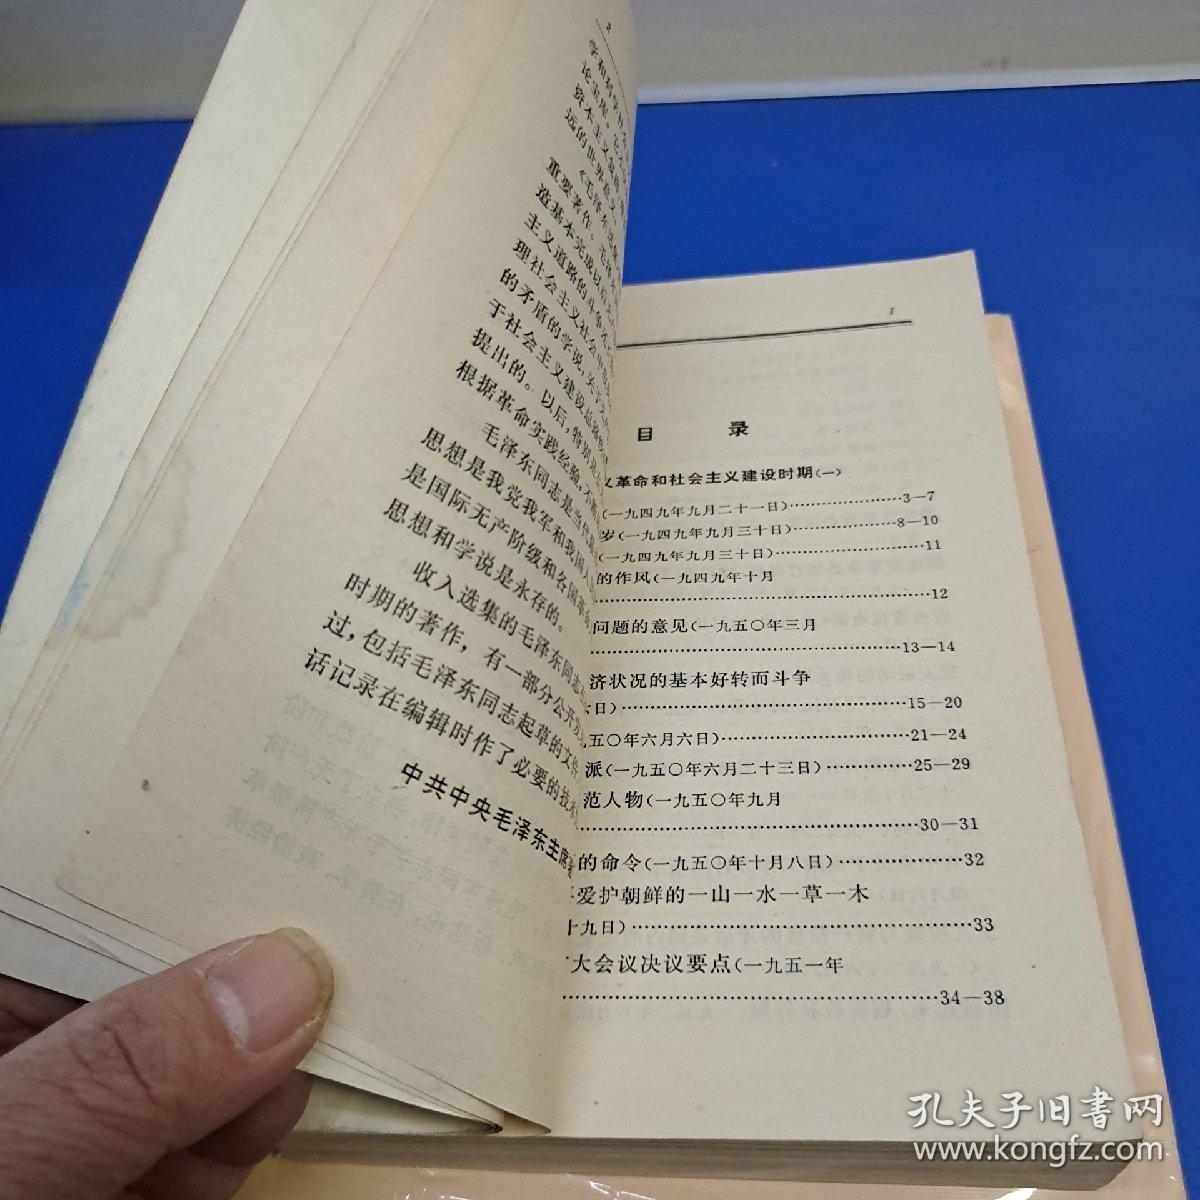 2
学和科学社
资本主义复辟
远的世界意义。
《毛泽东选集
重要著作。毛泽东
造基本完成以后
主义道路的斗争
理社会主义社会
的矛盾的学说,关于
于社会主义建设总路线
提出的。以后,特别是
根据革命实践经验,不断
毛泽东同志是当代最
思想是我党我军和我国人
是国际无产阶级和各国革命
思想和学说是永存的。
收入选集的毛泽东同志
时期的著作,有一部分公开发
过,包括毛泽东同志起草的文件
话记录在编辑时作了必要的技术
中共中央毛泽东主席
1
目 录
义革命和社会主义建设时期(一)
(一九四九年九月二十一日)…………………3—7
岁(一九四九年九月三十日)………………8—10
(一九四九年九月三十日)…………………………11
的作风(一九四九年十月
……………………………………………………12
问题的意见(一九五〇年三月
………………………………………………13—14
济状况的基本好转而斗争
六日)……………………………………………15—20
九五〇年六月六日)…………………………21—24
派(一九五〇年六月二十三日)……………25—29
范人物(一九五〇年九月
………………………………………………30—31
的命令(一九五〇年十月八日)………………32
爱护朝鲜的一山一水一草一木
十九日)……………………………………………33
扩大会议决议要点(一九五一年
……………………………………………………34—38
孔夫子旧书网
www.kongfz.com